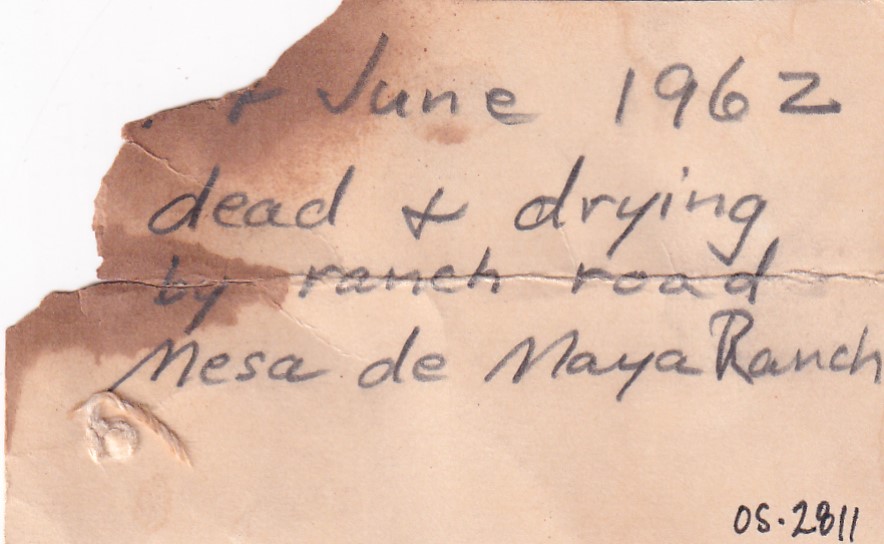 June 1962
dead & drying
by ranch road
Mesa de Maya Ranch
OS.2811